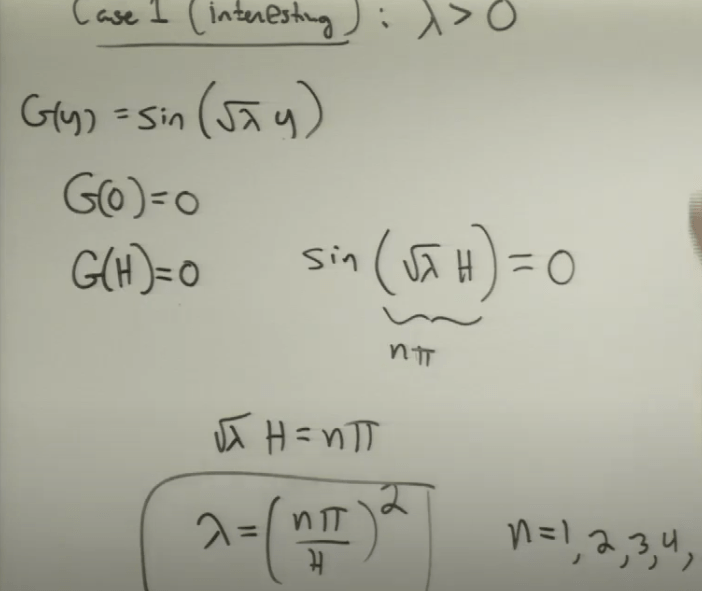 Case 1 (interesting): λ > 0
G(y) = sin (√λ y)
G(0) = 0
G(H) = 0 sin (√λ H) = 0
nπ
√λ H = nπ
λ = (nπ/H)² n = 1, 2, 3, 4,